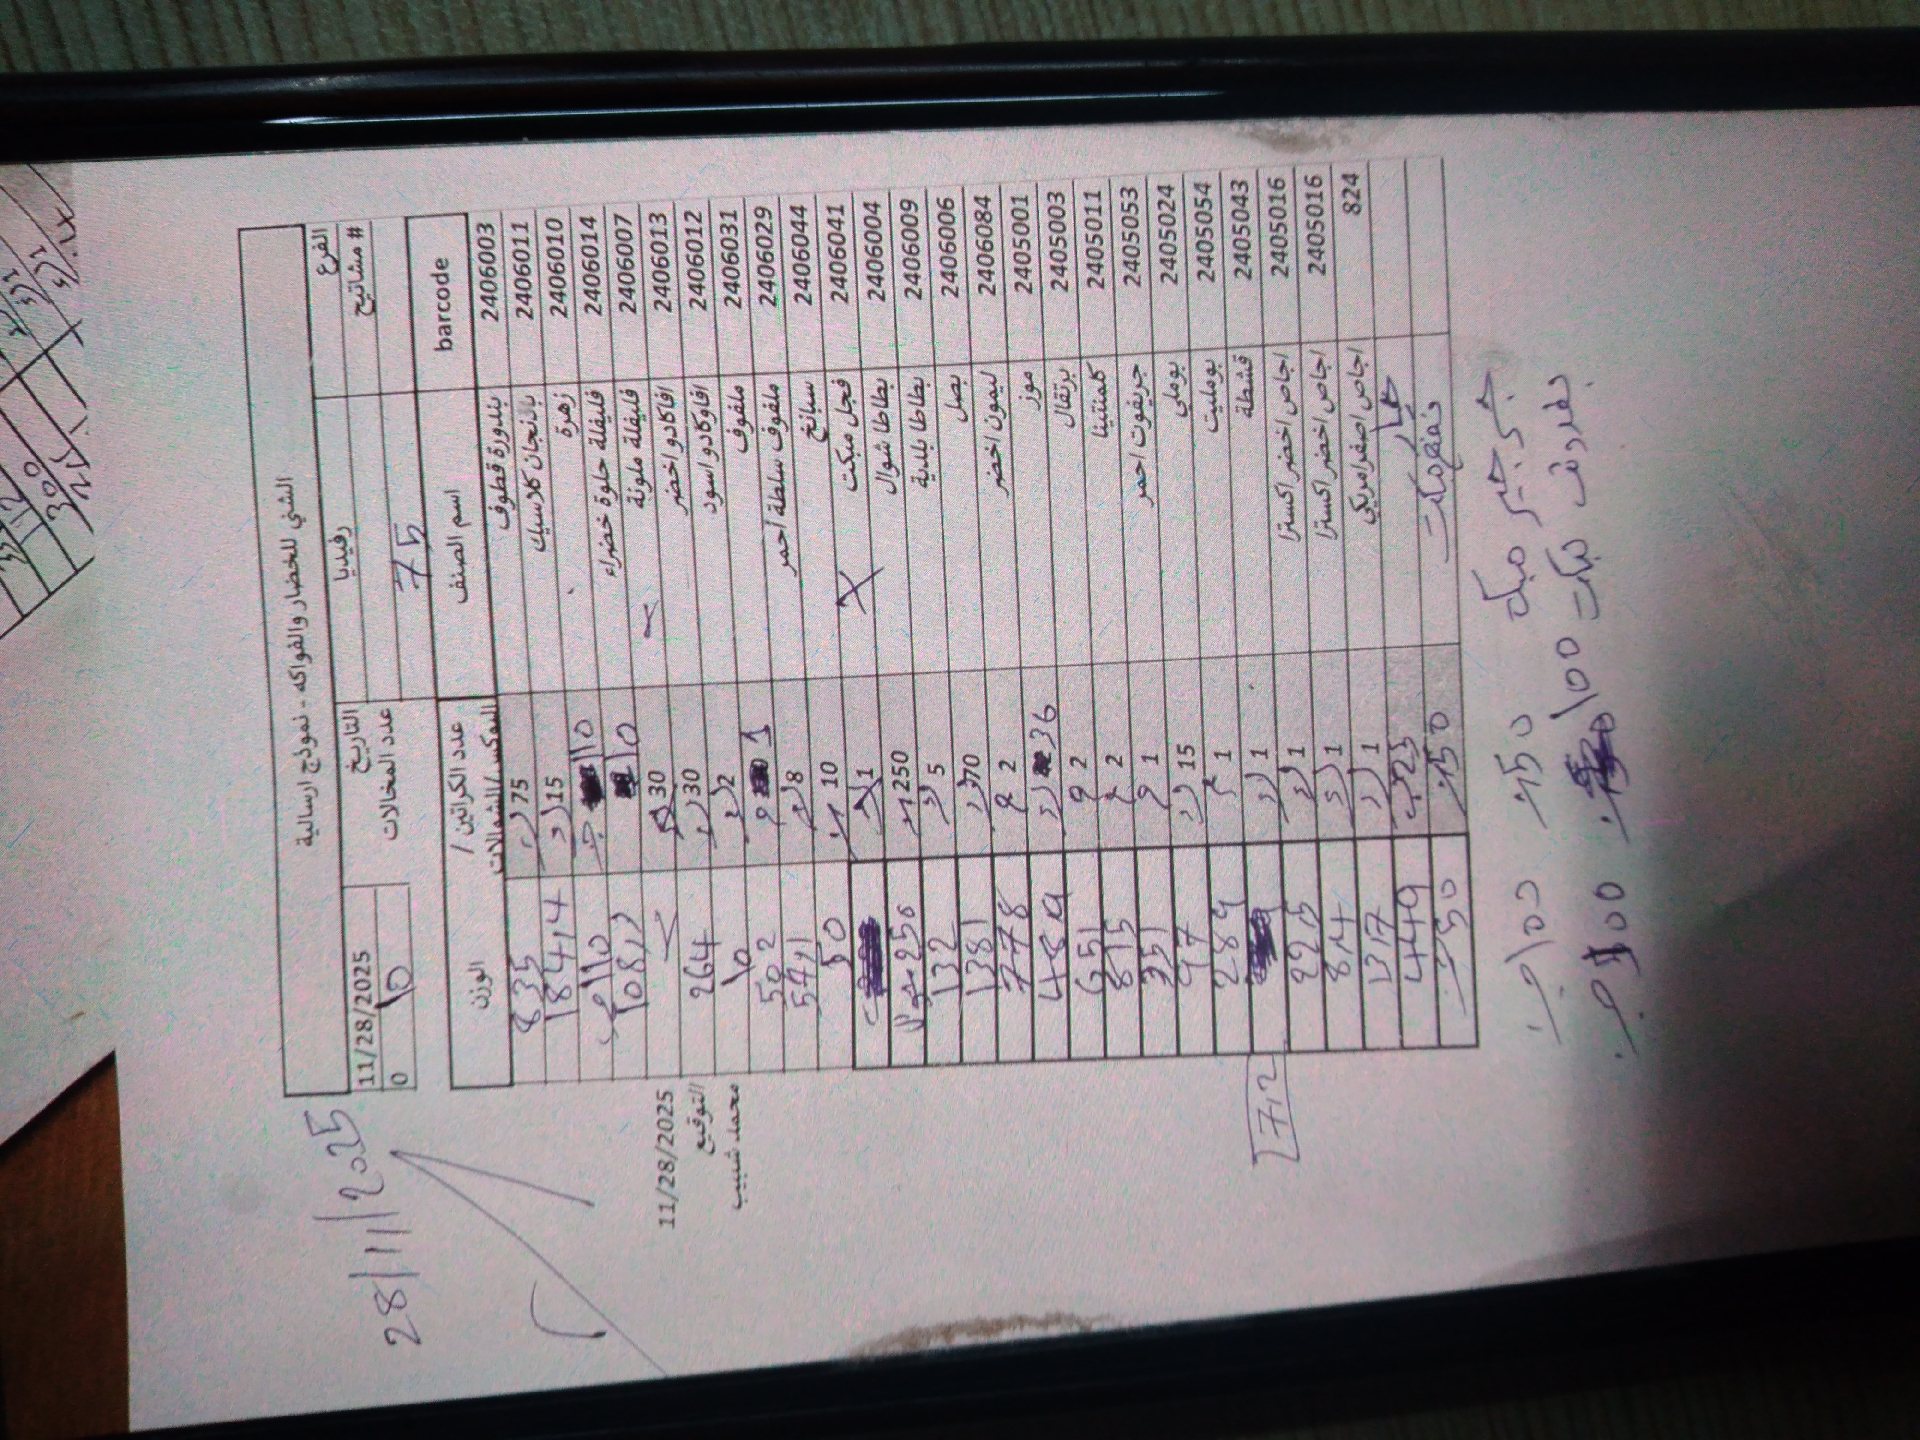 28/11/2025
الشني للخضار والفواكه - نموذج ارسالية
الفرع رفيديا التاريخ 11/28/2025
# مشاتيح 75 عدد المخالات 0 10
barcode اسم الصنف عدد الكراتين / البوكس/الشوالات الوزن
2406003 بندورة قطوف 75 835
2406011 باذنجان كلاسيك 15 184,4
2406010 زهرة 10 110
2406014 فليفلة حلوة خضراء 10 108,2
2406007 فليفلة ملونة 30
2406013 افاكادو اخضر 30 264
2406012 افاوكادو اسود 2 10
2406031 ملفوف 1 502
2406029 ملفوف سلطة احمر 8 57,1
2406044 سبانخ 10 50
2406041 فجل مبكت 1
2406004 بطاطا شوال 250 250
2406009 بطاطا بلدية 5 132
2406006 بصل 70 1381
2406084 ليمون اخضر 2 778
2405001 موز 36 489
2405003 برتقال 2 651
2405011 كلمنتينا 2 815
2405053 جريفوت احمر 1 351
2405024 بوملي 15
2405054 بومليت 1 289
2405043 قشطة 1 7,2
2405016 اجاص اخضر اكسترا 1
2405016 اجاص اخضر اكسترا 1
824 اجاص اصفر امريكي 1 13,7
خيار 25 449
50 50
جرجير 50
بقدونس 100 100
11/28/2025
التوقيع
محمد شبيب